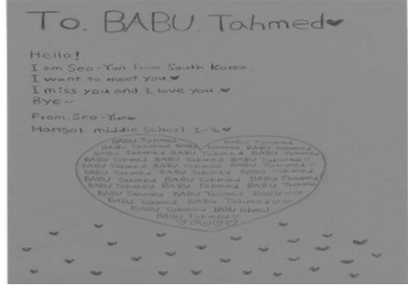 To. BABU Tahmed♥
Hello!
I am Seo-Yun from South Korea.
I want to meet you♥
I miss you and I love you ♥
Bye~
From. Seo-Yun♥
Hansol middle school 1-1♥
BABU Tahmed BABU Tahmed
BABU Tahmed BABU Tahmed BABU Tahmed
BABU Tahmed BABU Tahmed BABU Tahmed
BABU Tahmed BABU Tahmed BABU Tahmed
BABU Tahmed BABU Tahmed BABU Tahmed
BABU Tahmed BABU Tahmed BABU Tahmed
BABU Tahmed BABU Tahmed BABU
BABU Tahmed BABU Tahmed
BABU Tahmed BABU Tahmed
BABU Tahmed